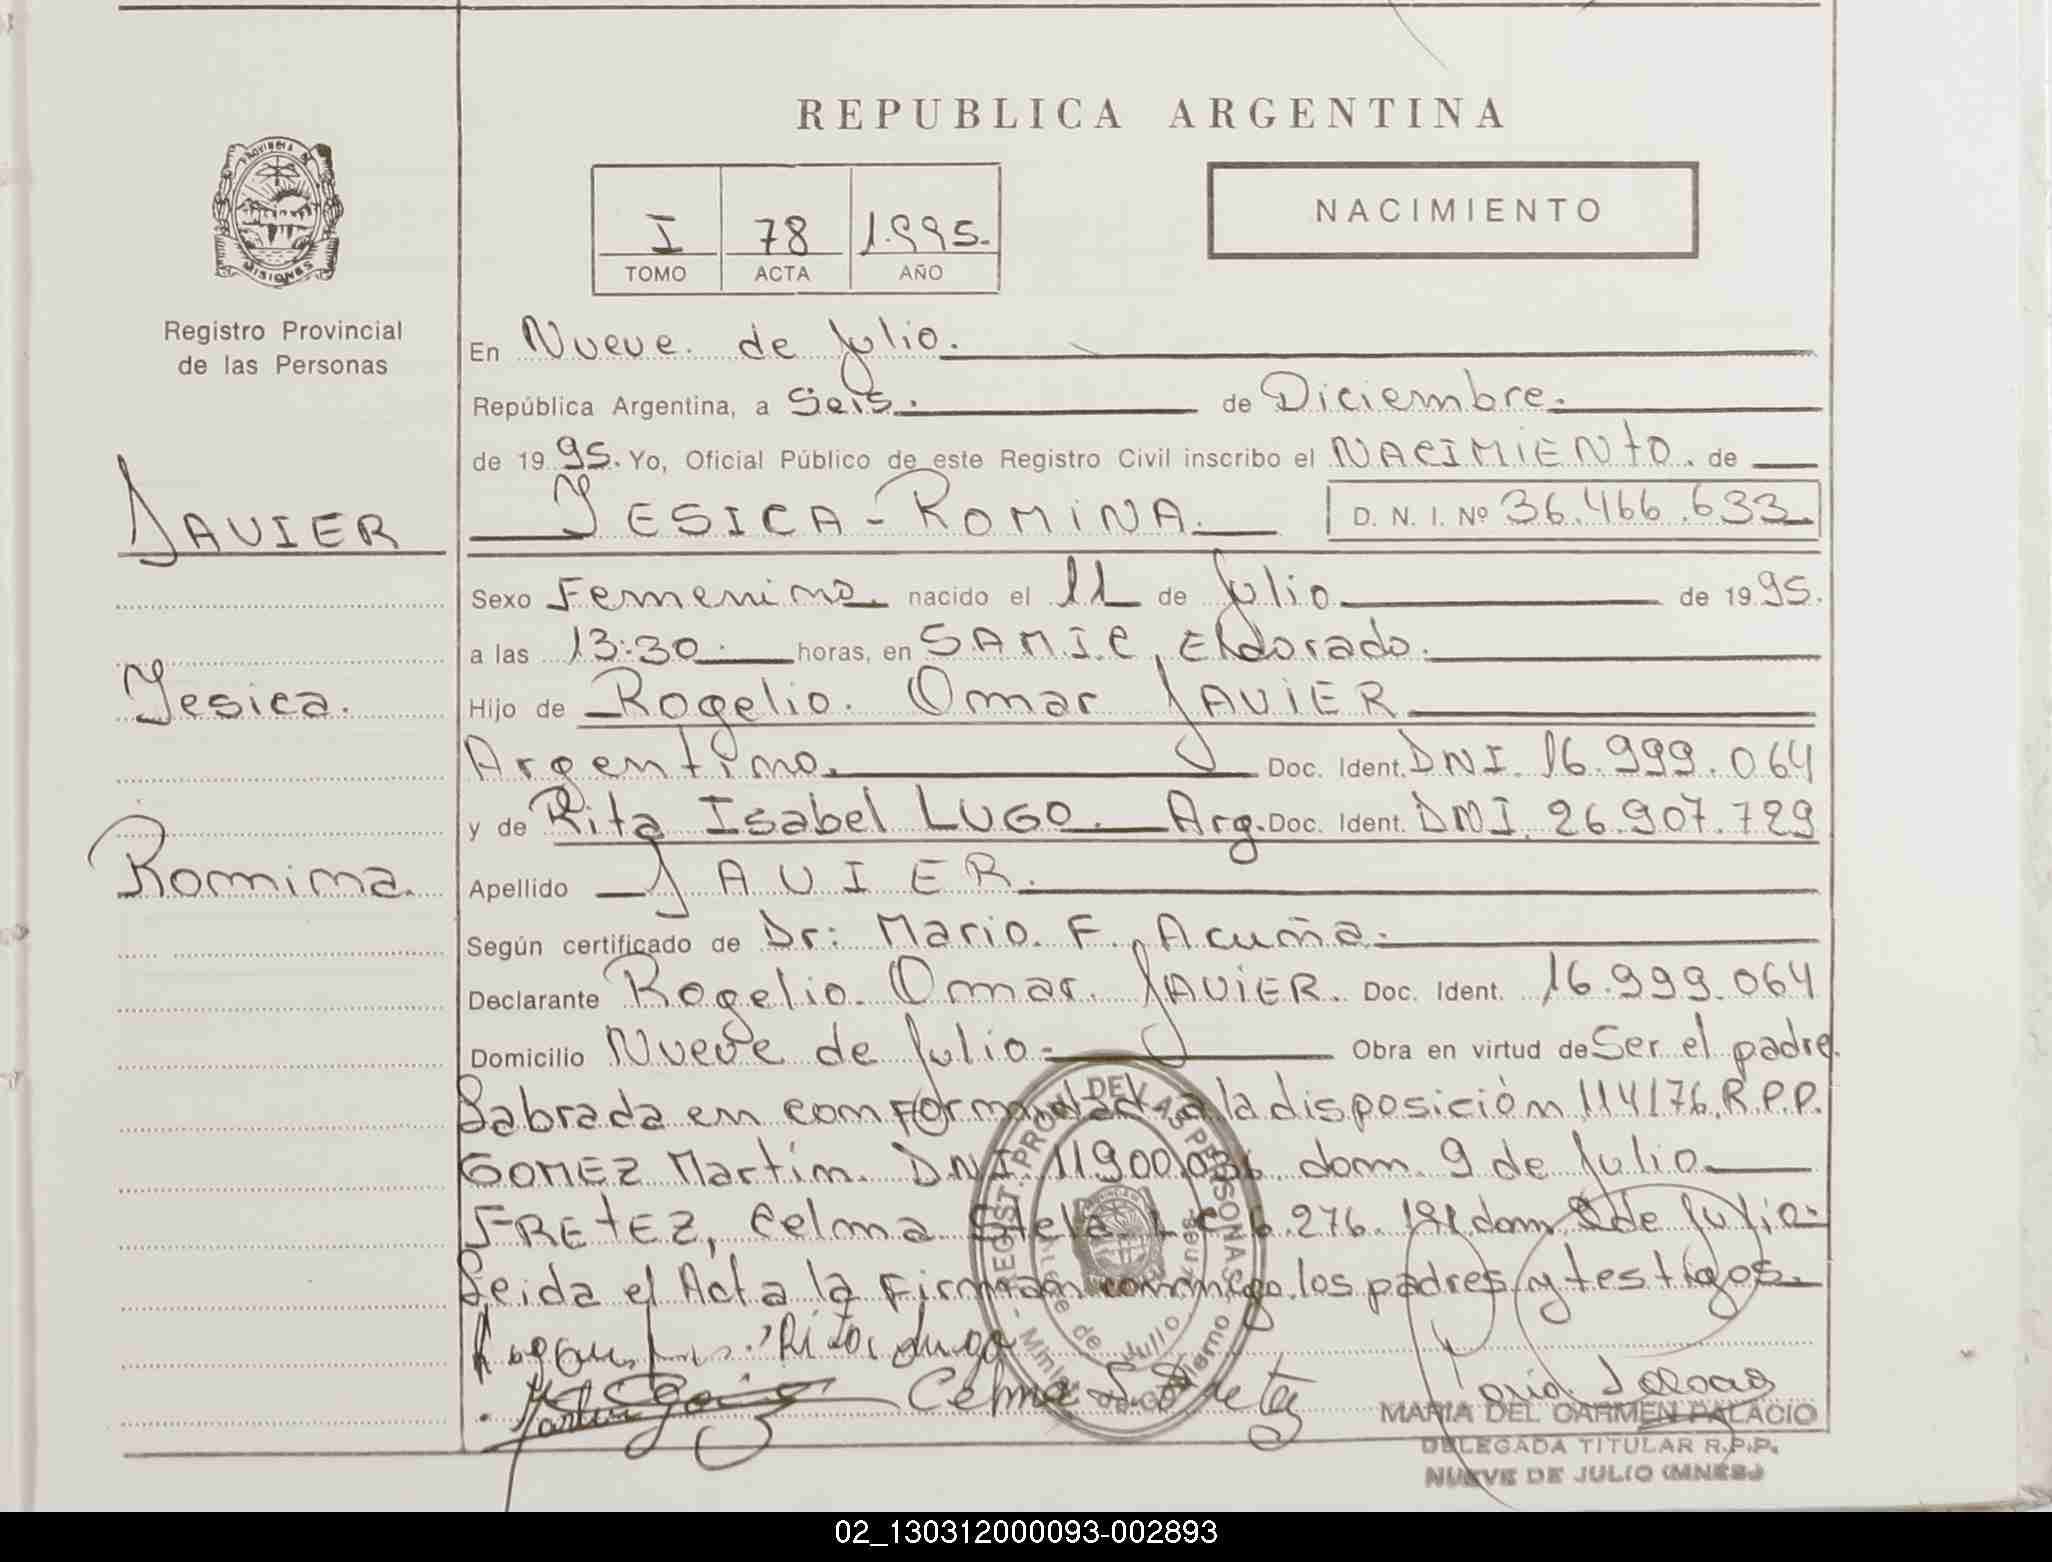 REPUBLICA ARGENTINA
PROVINCIA DE
MISIONES
Registro Provincial
de las Personas
I 78 1995.
TOMO ACTA AÑO
NACIMIENTO
En Nueve de Julio.
República Argentina, a Seis. de Diciembre.
de 1995. Yo, Oficial Público de este Registro Civil inscribo el NACIMIENTO. de
JAVIER
YESICA-ROMINA. D. N. I. Nº 36.466.633
Sexo Femenino. nacido el 11 de Julio de 1995.
a las 13:30. horas, en SAMIC, Eldorado.
Yesica.
Hijo de Rogelio. Omar JAVIER
Argentino. Doc. Ident. DNI. 16.999.064
y de Rita Isabel LUGO. Arg. Doc. Ident. DNI. 26.907.729
Romina.
Apellido JAVIER.
Según certificado de Dr: Mario. F. Acuña.
Declarante Rogelio. Omar. JAVIER. Doc. Ident. 16.999.064
Domicilio Nueve de Julio. Obra en virtud de Ser el padre.
Labrada en conformidad a la disposición 114/76. R.P.P.
GOMEZ Martin. DNI. 11900.036 dom. 9 de Julio
FRETEZ, Celma Stela L C 6.276. 191 dom. 9 de Julio.
Leida el Acta la Firman conmigo los padres y testigos.
Rita Lugo
Martin Gomez Celma S. Fretez
REGIST. PROV. DE LAS PERSONAS
Nueve de Julio Mnes.
MARIA DEL CARMEN PALACIO
DELEGADA TITULAR R.P.P.
NUEVE DE JULIO (MNES.)
02_130312000093-002893